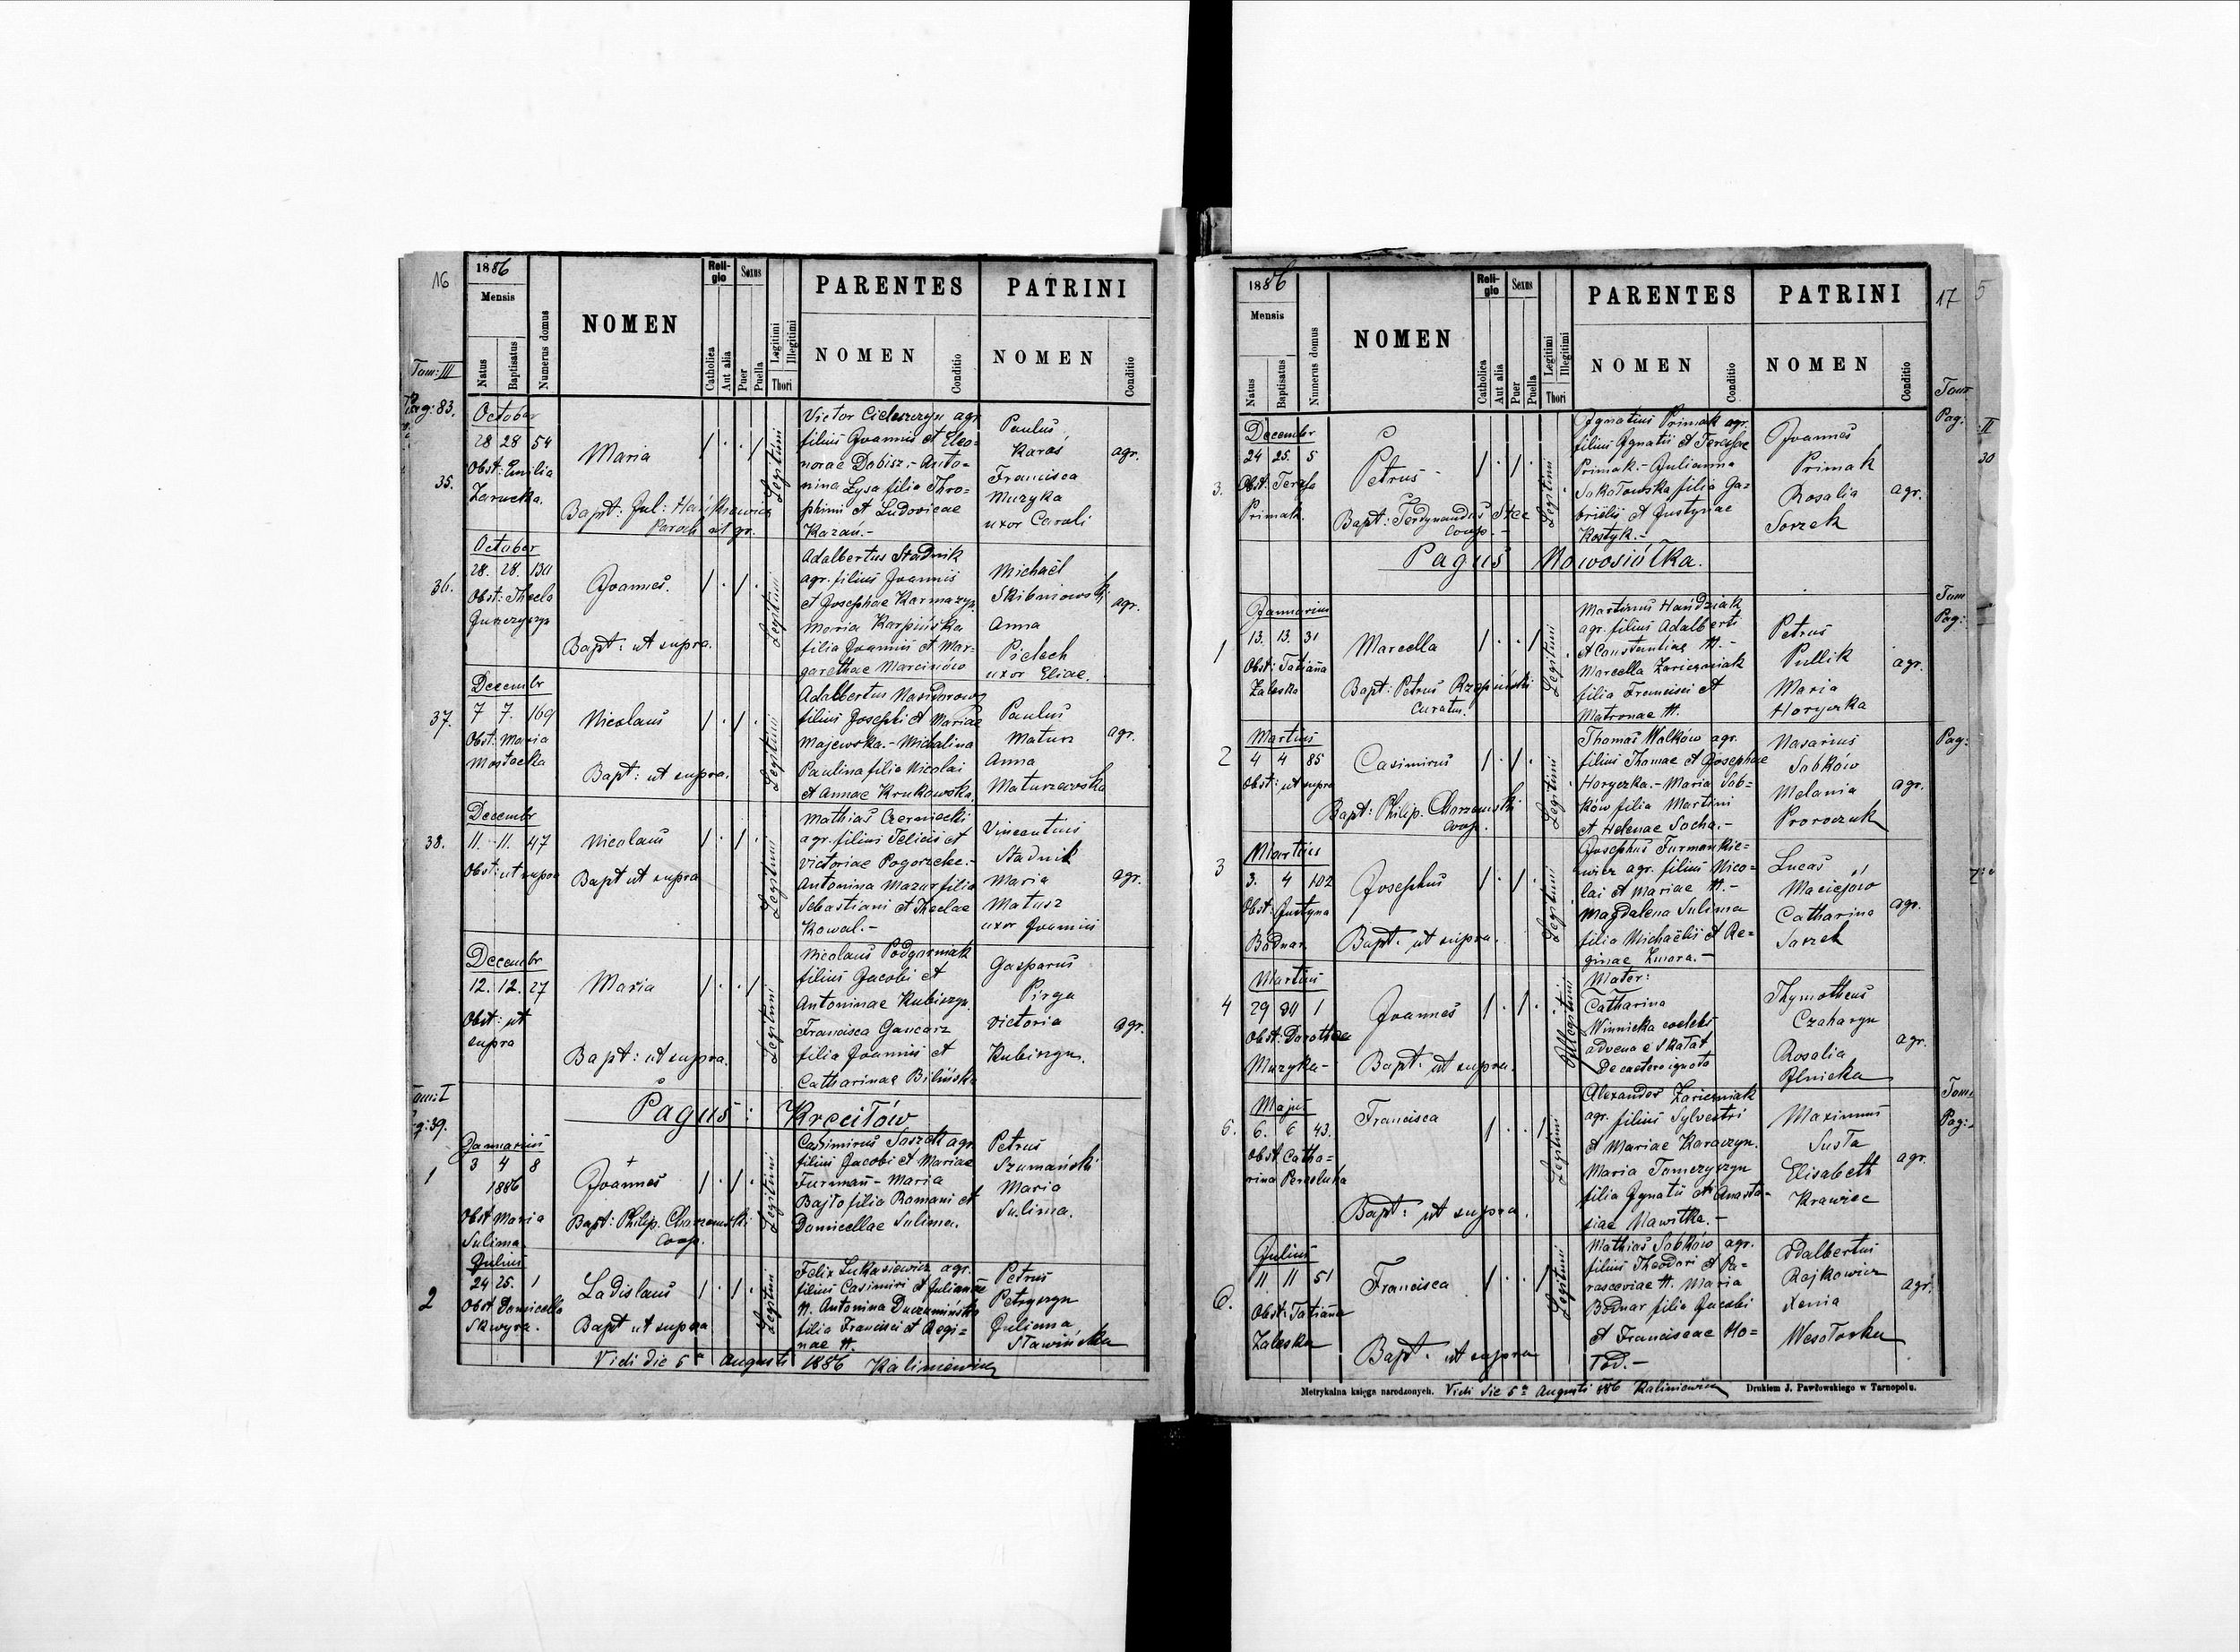 16
1886
Mensis
Natus
Baptisatus
Numerus domus
NOMEN
Reli-
gio
Catholica
Aut alia
Sexus
Puer
Puella
Legitimi
Illegitimi
Thori
PARENTES
NOMEN
Conditio
PATRINI
NOMEN
Conditio
Tom: III
Pag: 83.
35.
October
28 28 54
Obst: Emilia
Zarucka.
Maria
Bapt: Jul:
Paroch
Legitimi
Victor Cieleszczyn agr.
filius Joannis et Eleo-
norae Dobisz.- Anto-
nina Łysa filia Thro-
phimi et Ludovicae
Kazań.-
Paulus
Karaś
Francisca
Muzyka
uxor Caroli
agr.
36.
October
28. 28. 130
Obst: Thecla
Joannes.
Bapt: ut supra.
Legitimi
Adalbertus Stadnik
agr. filius Joannis
et Josephae Karmazyn.
Maria Karpińska
filia Joannis et Mar-
garethae Marcinów
Michaël
Skibniowski
Anna
Pielech
uxor Eliae.
agr.
37.
Decembr
7 7. 169
Obst: Maria
Nicolaus
Bapt: ut supra.
Legitimi
Adalbertus
filius Josephi et Mariae
Majewska.- Michalina
Paulina filia Nicolai
et Annae Krukowska.
Paulus
Matusz
Anna
agr.
38.
Decembr
11. 11. 47
Obst: ut supra
Nicolaus
Bapt ut supra
Legitimi
Mathias Czerniecki
agr. filius Felicis et
Victoriae
Antonina Mazur filia
Sebastiani et Theclae
Kowal.-
Vincentius
Stadnik
Maria
Matusz
uxor Joannis
agr.
Decembr
12. 12. 27
Obst: ut
supra
Maria
Bapt: ut supra.
Legitimi
Nicolaus
filius Jacobi et
Antoninae Kubiszyn.
Francisca Gancarz
filia Joannis et
Catharinae Bilińska
Gasparus
Pirga
Victoria
Kubiszyn.
agr.
Pagus: Krecitów
1
Januarius
3 4 8
1886
Obst Maria
Sulima
Joannes
Bapt: Philip. Charzewski
Coop.
Legitimi
Casimirus Saszek agr.
filius Jacobi et Mariae
Furman - Maria
Bajło filia Romani et
Domicellae Sulima.
Petrus
Szumański
Maria
Sulima.
2
Julius
24 25. 1
Obst Domicella
Skwyra.
Ladislaus
Bapt ut supra
Legitimi
Felix Łukasiewicz agr.
filius Casimiri et Julianae
N. Antonina
filia Francisci et Regi-
nae N.
Petrus
Petryszyn
Julianna
Sławińska
Vidi die 5ª Augusti 1886 Kaliniewicz
17
1886
Mensis
Natus
Baptisatus
Numerus domus
NOMEN
Reli-
gio
Catholica
Aut alia
Sexus
Puer
Puella
Legitimi
Illegitimi
Thori
PARENTES
NOMEN
Conditio
PATRINI
NOMEN
Conditio
Tom
Pag:
3.
Decembr
24 25. 5
Obst: Teresa
Primak.
Petrus
Bapt: Ferdynandus Stec
Coop.-
Legitimi
Ignatius Primak agr.
filius Ignatii et Teresae
Primak.- Julianna
Sokołowska filia Ga-
brielis et Justynae
Kostyk.-
Joannes
Primak
Rosalia
agr.
Pagus Nowosiółka.
1
Januarius
13. 13. 31
Obst: Tatianna
Zaleska
Marcella
Bapt: Petrus Rzepiński
Curatus.
Legitimi
Martinus Hańdziak
agr. filius Adalberti
et Constantiae N.-
Marcella Zarieczniak
filia Francisci et
Matronae N.
Petrus
Pullik
Maria
Horyczka
agr.
Tom
Pag:
2
Martius
4 4 85
Obst: ut supra
Casimirus
Bapt: Philip. Charzewski
Coop.
Legitimi
Thomas Walków agr.
filius Thomae et Josephae
Horyczka.- Maria Sob-
ków filia Martini
et Helenae Socha.-
Nasarius
Sobków
Melania
Proroczuk
agr.
Pag:
3
Martius
3. 4 102
Obst: Justyna
Bodnar
Josephus
Bapt: ut supra.
Legitimi
Josephus Furmankie-
wicz agr. filius Nico-
lai et Mariae N.-
Magdalena Sulima
filia Michaëlis et Re-
ginae Zmora.-
Lucas
Maciejów
Catharina
agr.
4
Martius
29 30 1
Obst: Dorothea
Muzyka-
Joannes
Bapt: ut supra.
Illegitimi
Mater:
Catharina
Winnicka coelebs
advena e Skałat
De caetero ignota
Thymotheus
Czaharyn
Rosalia
agr.
5.
Majus
6. 6 43.
Obst Catha-
rina
Francisca
Bapt: ut supra.
Legitimi
Alexander Zarieczniak
agr. filius Sylvestri
et Mariae Karaczyn.
Maria Tomczyszyn
filia Ignatii et Anasta-
siae Nawitka.-
Maximus
Susła
Elisabeth
Krawiec
agr.
Tom:
Pag:
6.
Julius
11 11 51
Obst: Tatianna
Zaleska
Francisca
Bapt. ut supra
Legitimi
Mathias Sobków agr.
filius Theodori et Pa-
rasceviae N. Maria
Bodnar filia Jacobi
et Franciscae Mo-
łod.-
Adalbertus
Rajkowicz
Xenia
Wesołowska
agr.
Metrykalna księga narodzonych. Vidi die 5ª Augusti 886 Kaliniewicz Drukiem J. Pawłowskiego w Tarnopolu.